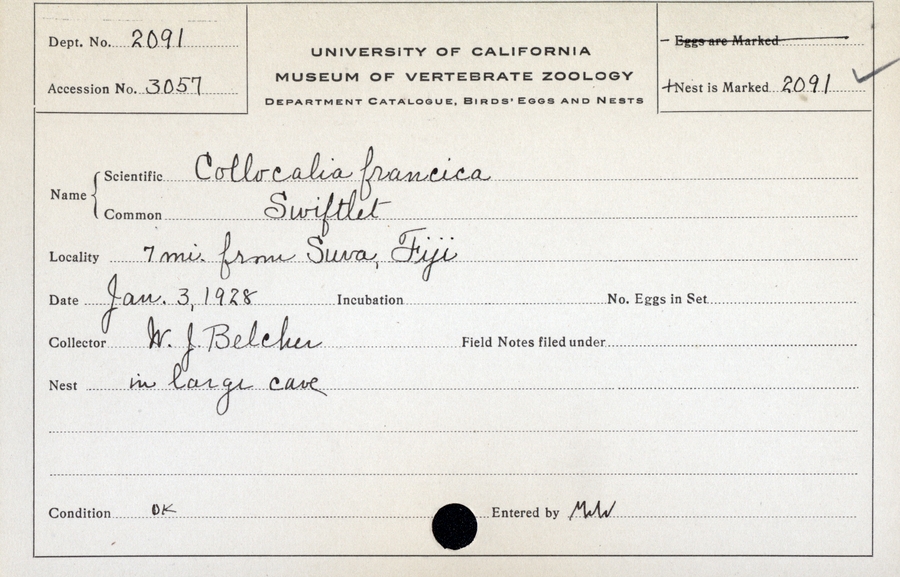 Dept. No. 2091
Accession No. 3057
UNIVERSITY OF CALIFORNIA
MUSEUM OF VERTEBRATE ZOOLOGY
DEPARTMENT CATALOGUE, BIRDS' EGGS AND NESTS
- Eggs are Marked
+Nest is Marked 2091
Name
Scientific Collocalia francica
Common Swiftlet
Locality 7 mi. from Suva, Fiji
Date Jan. 3, 1928 Incubation No. Eggs in Set
Collector W. J. Belcher Field Notes filed under
Nest in large cave
Condition OK Entered by